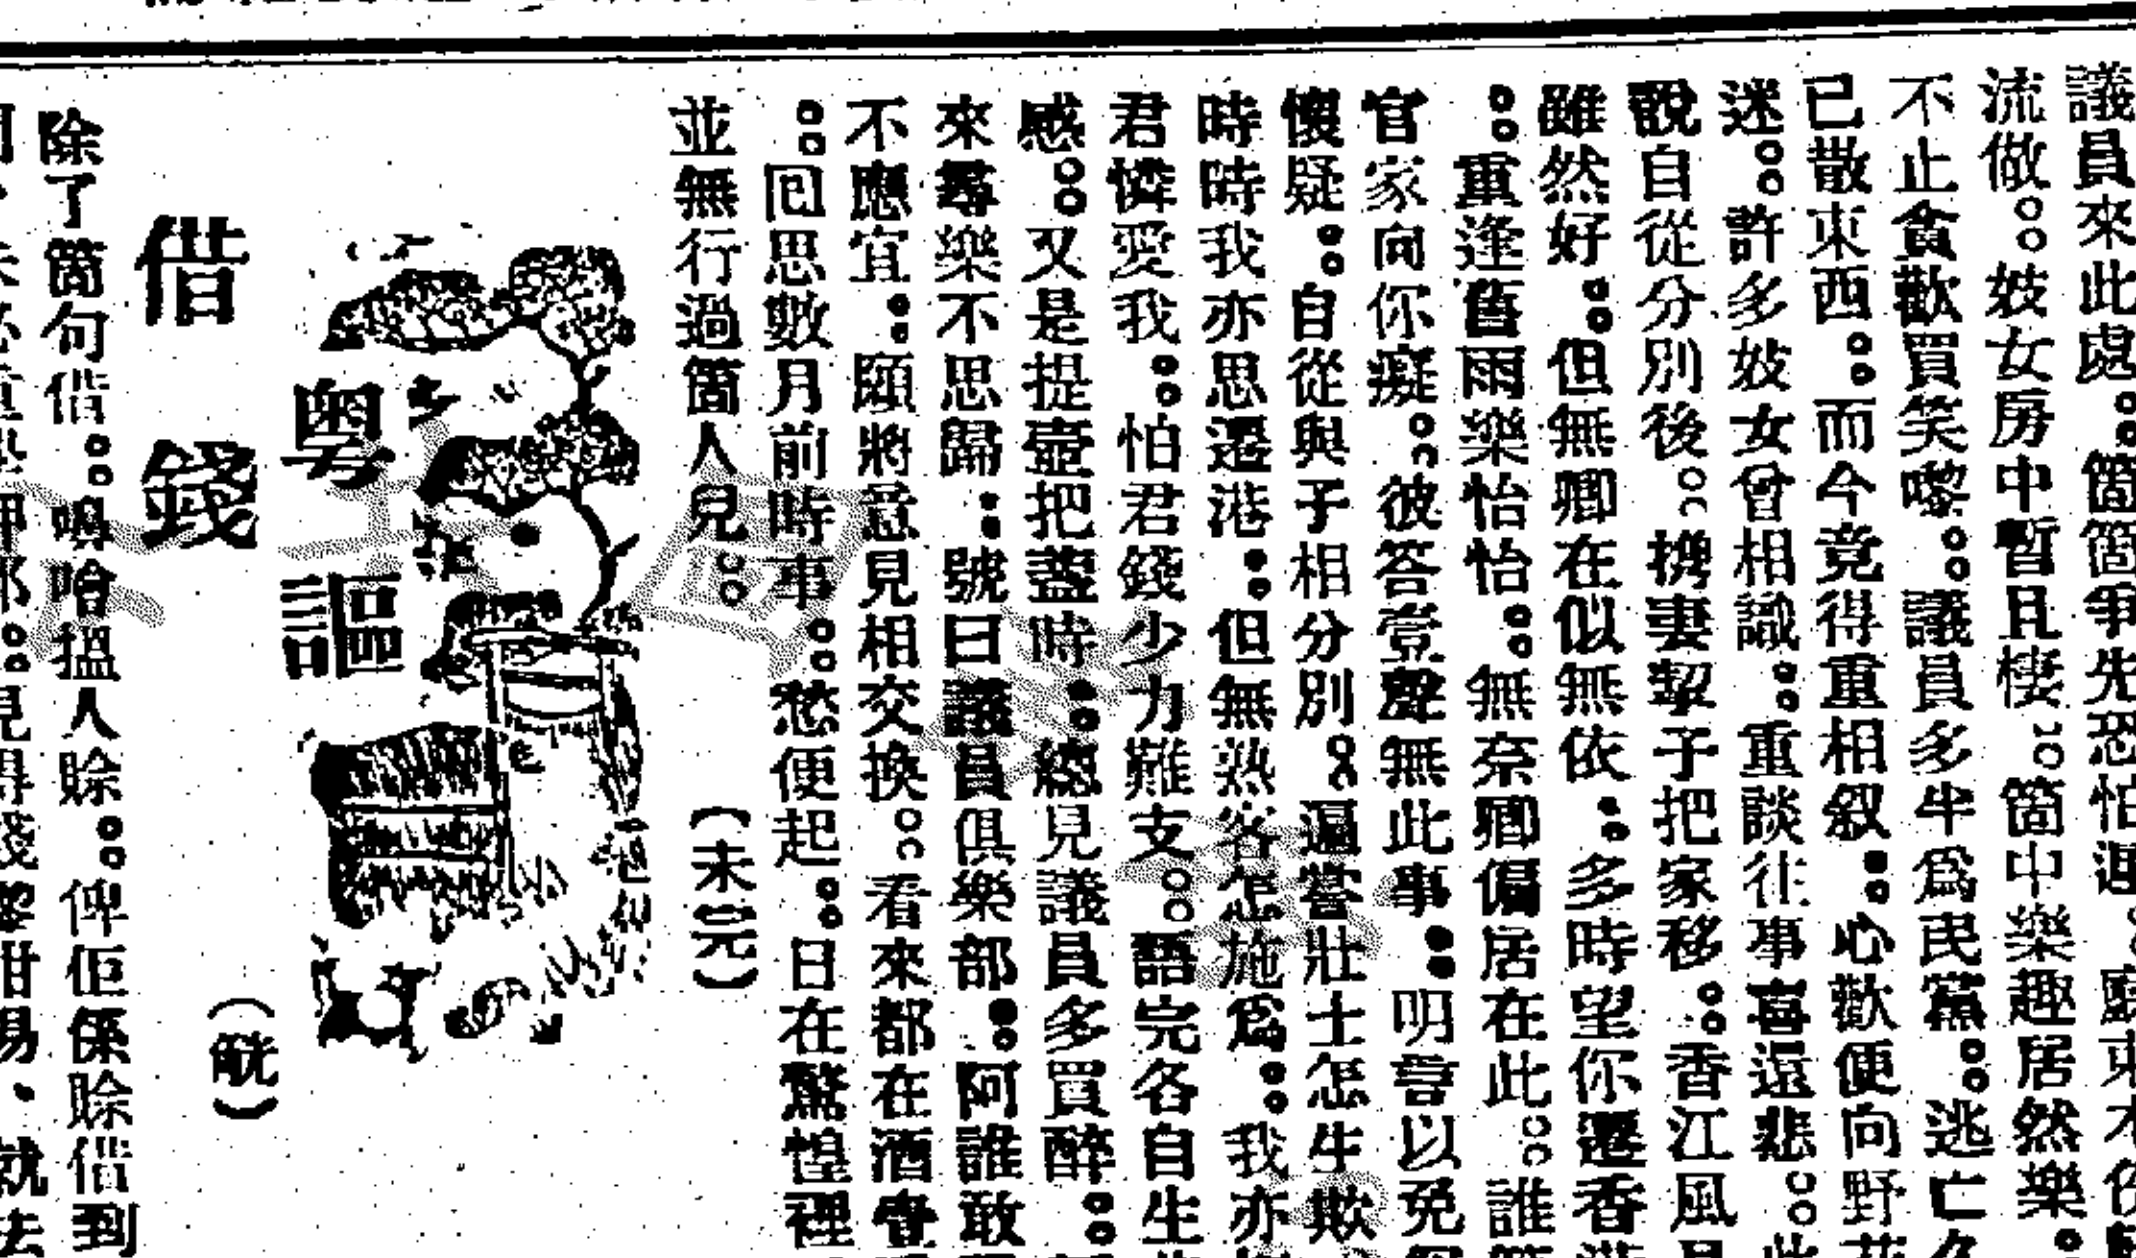 議員來此處。箇箇爭先恐怕遲。
流做。妓女房中暫且棲。箇中樂趣居然樂。
不止貪歡買笑嚟。議員多半爲民黨。逃亡
已散東西。而今竟得重相叙。心歡便向野
迷。許多妓女曾相識。重談往事喜還悲。
說自從分別後。携妻挈子把家移。香江風
雖然好。但無卿在似無依。多時望你遷香
。重逢舊雨樂怡怡。無奈卿偏居在此。誰
官家向你癡。彼答壹聲無此事。明言以免
懷疑。自從與子相分別。遍嘗壯士怎生欺
時時我亦思遷港。但無熟客怎施爲。我亦
君憐愛我。怕君錢少力難支。語完各自生
感。又是提壺把盞時。總見議員多買醉。
來尋樂不思歸。號曰議員俱樂部。阿誰敢
不應宜。願將意見相交換。看來都在酒
。囘思數月前時事。愁便起。日在驚惶裡
並無行過箇人見。（未完）
粤謳
借錢
除了箇句借。嗚哈搵人賒。俾佢係賒借到